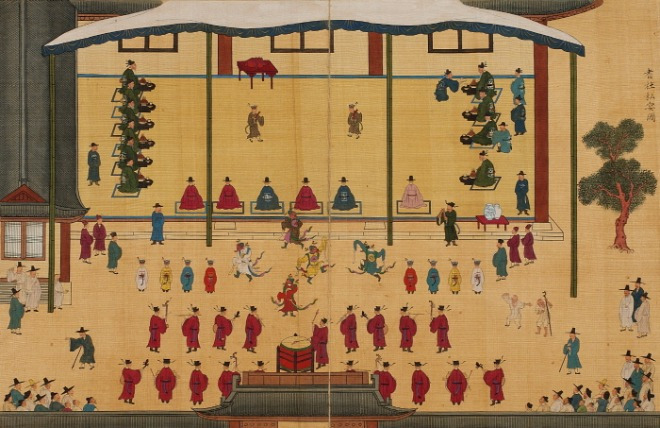 耆社私宴圖